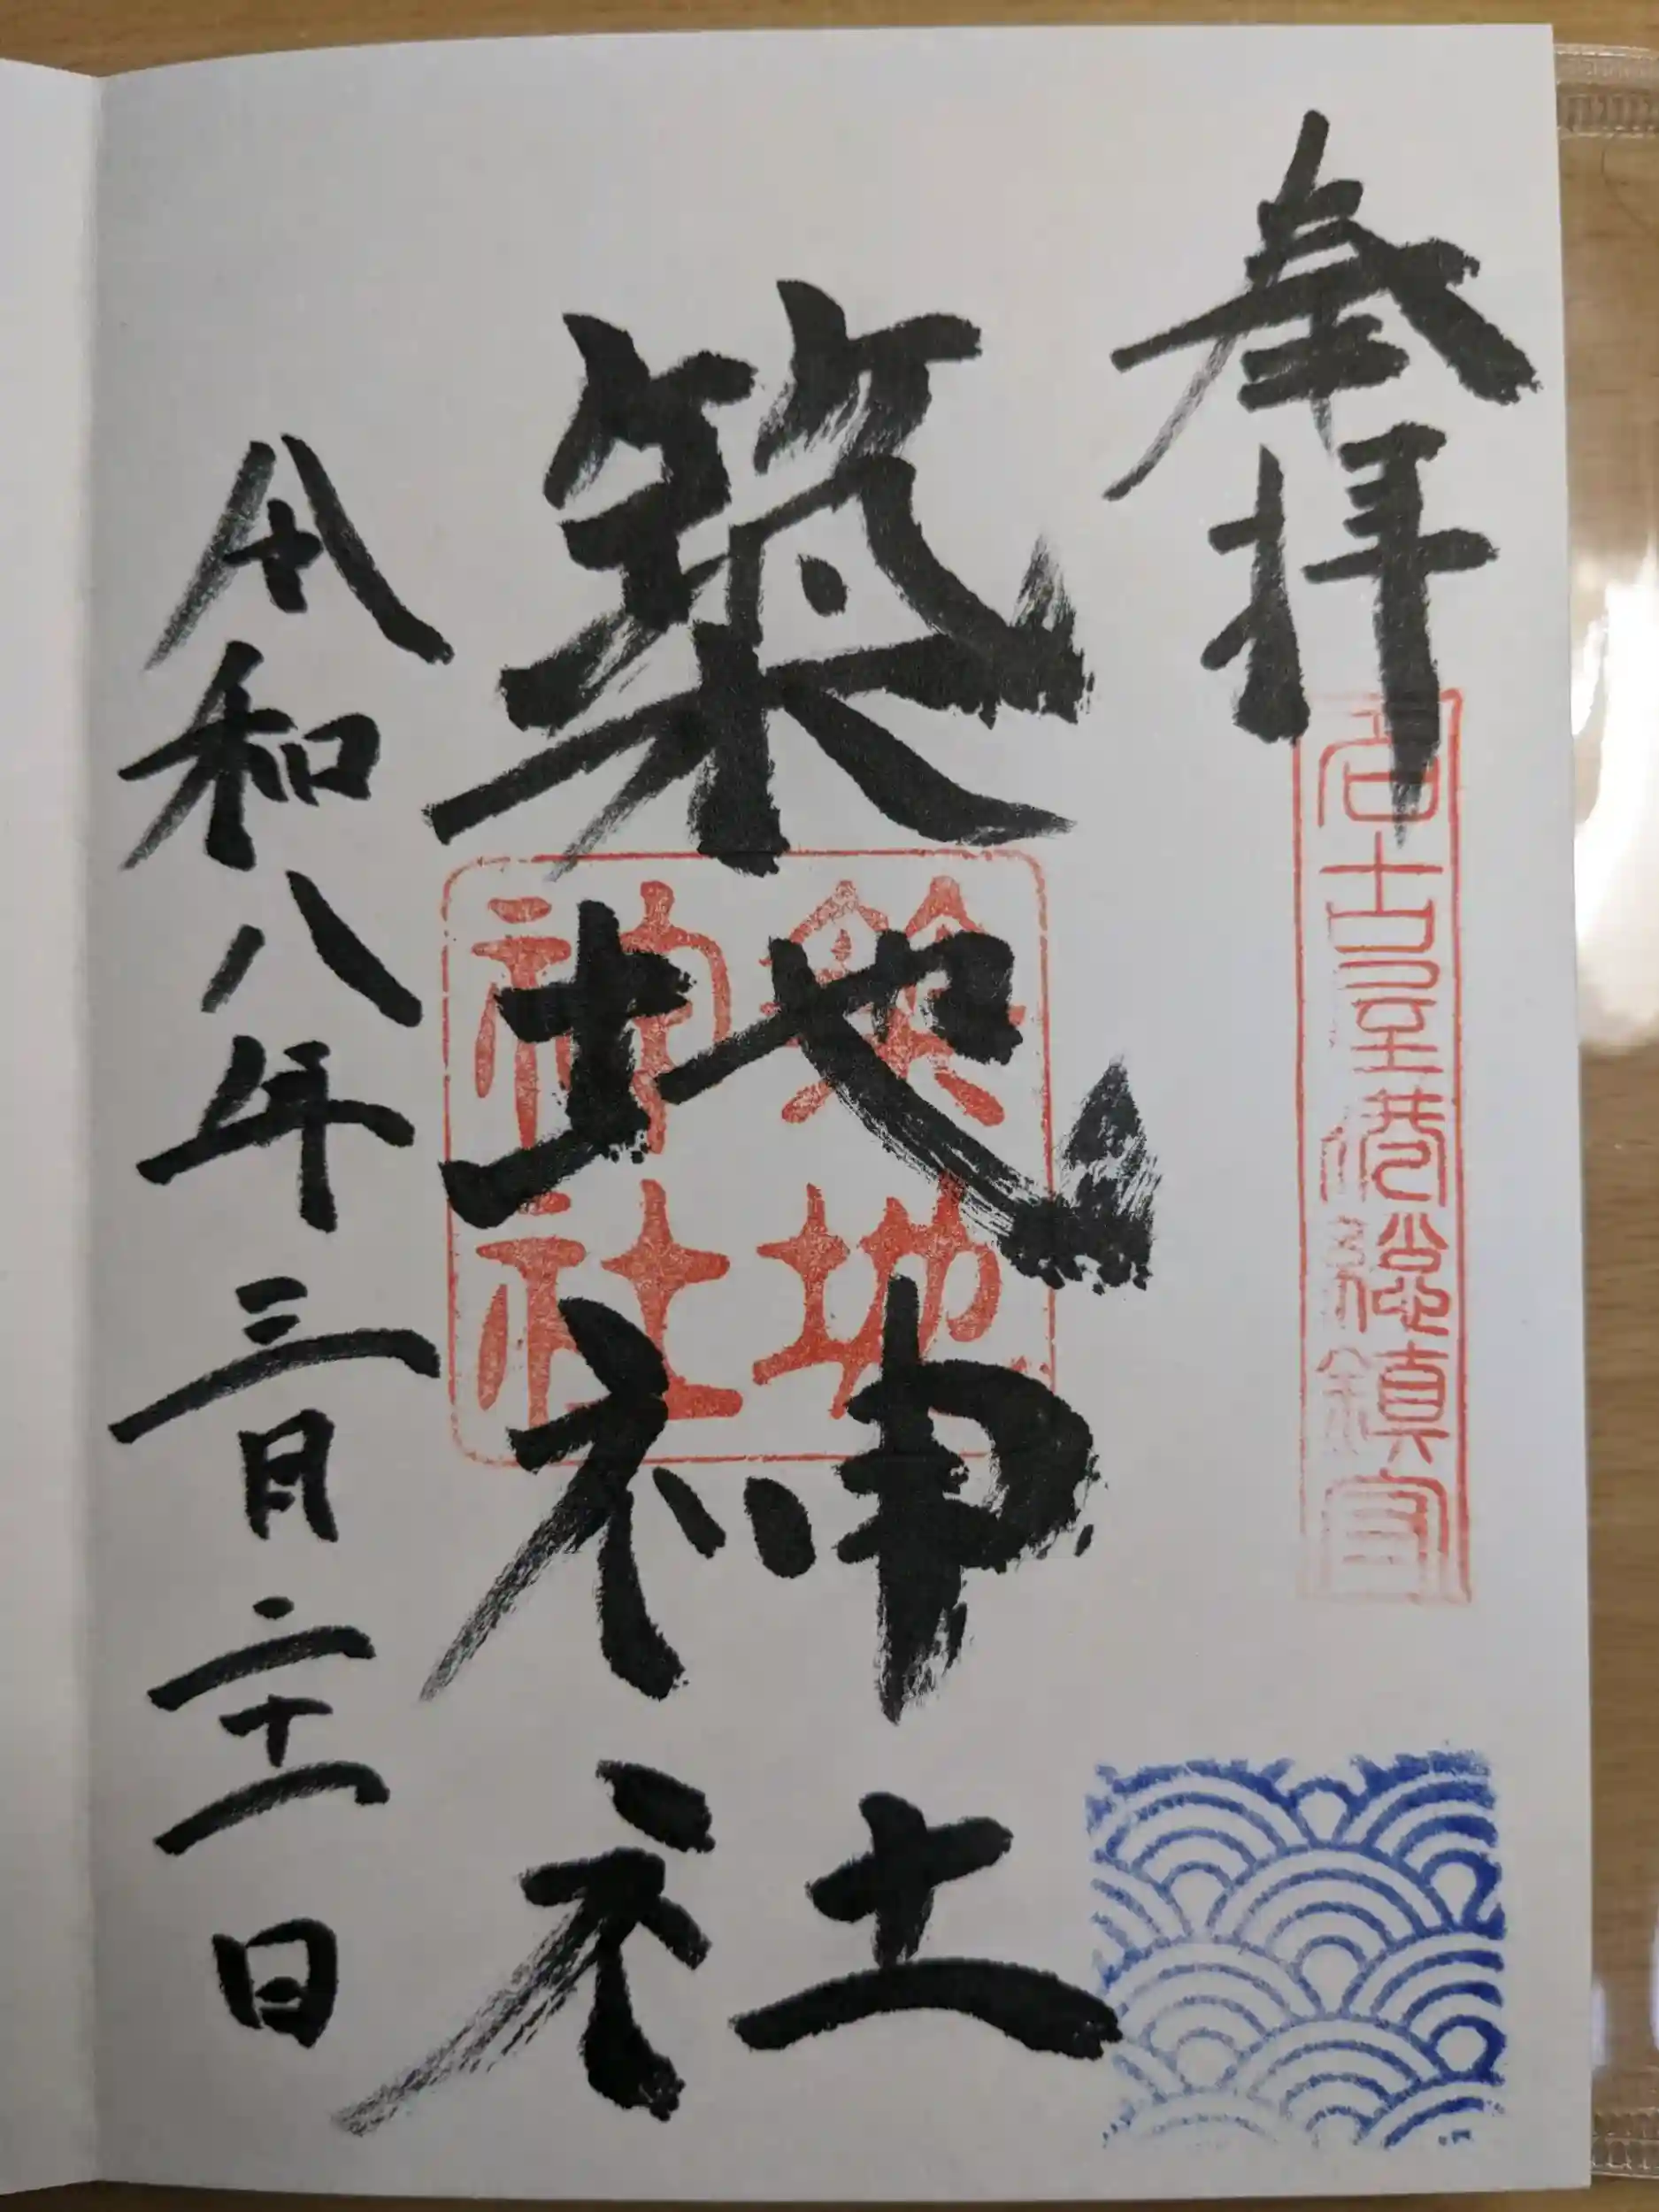 奉拝
名古屋港總鎮守
築地神社
築地
神社
令和八年三月二十一日